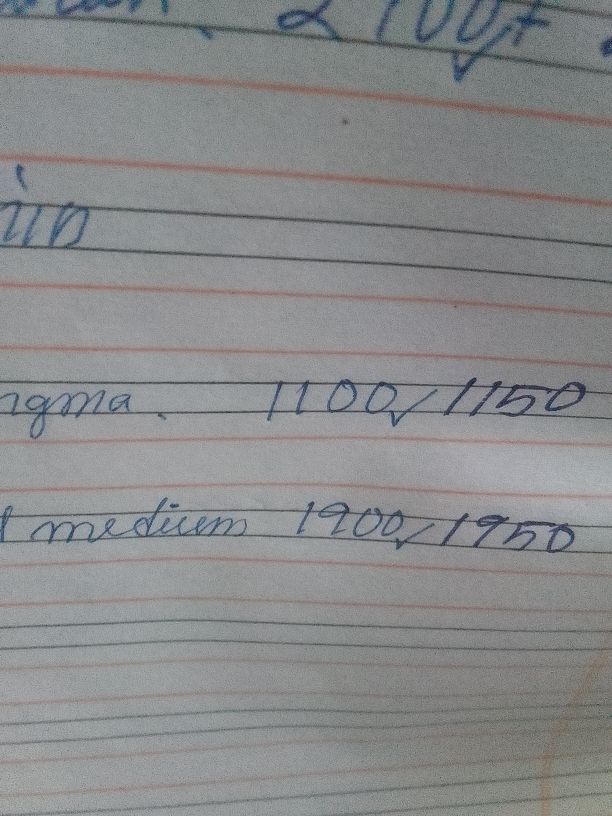 2100,+
iin
ngma. 1100/1150
medium 1900/1950